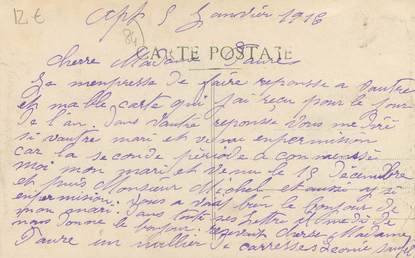 12 €
App 5 Janvier 1918
84
CARTE POSTALE
cherre Madame
Je menpresse de faire reponsse a vautre
et malle carte qui j'ai reçu pour le jour
de l'an. dans vautre reponsse vous me diré
si vautre mari et venu enpermission
car la seconde période a conmenssé
moi mon mari et venu le 13 Décembre
et puis Monsieur Michel et aussi
enpermission. vous a vait bien le bonjour de
mon mari. dans toute ses lettre il me di de
vous donné le bonjour. cherre Madame
un millier de carresses Léonie